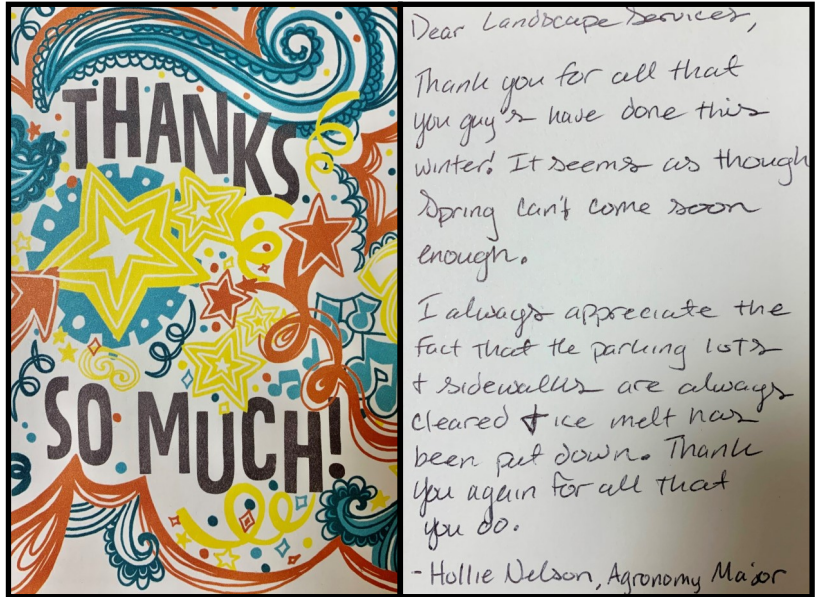 THANKS
SO MUCH!
Dear Landscape Services,
Thank you for all that
you guy's have done this
winter! It seems as though
Spring can't come soon
enough.
I always appreciate the
fact that the parking lots
+ sidewalks are always
cleared + ice melt has
been put down. Thank
you again for all that
you do.
- Hollie Nelson, Agronomy Major